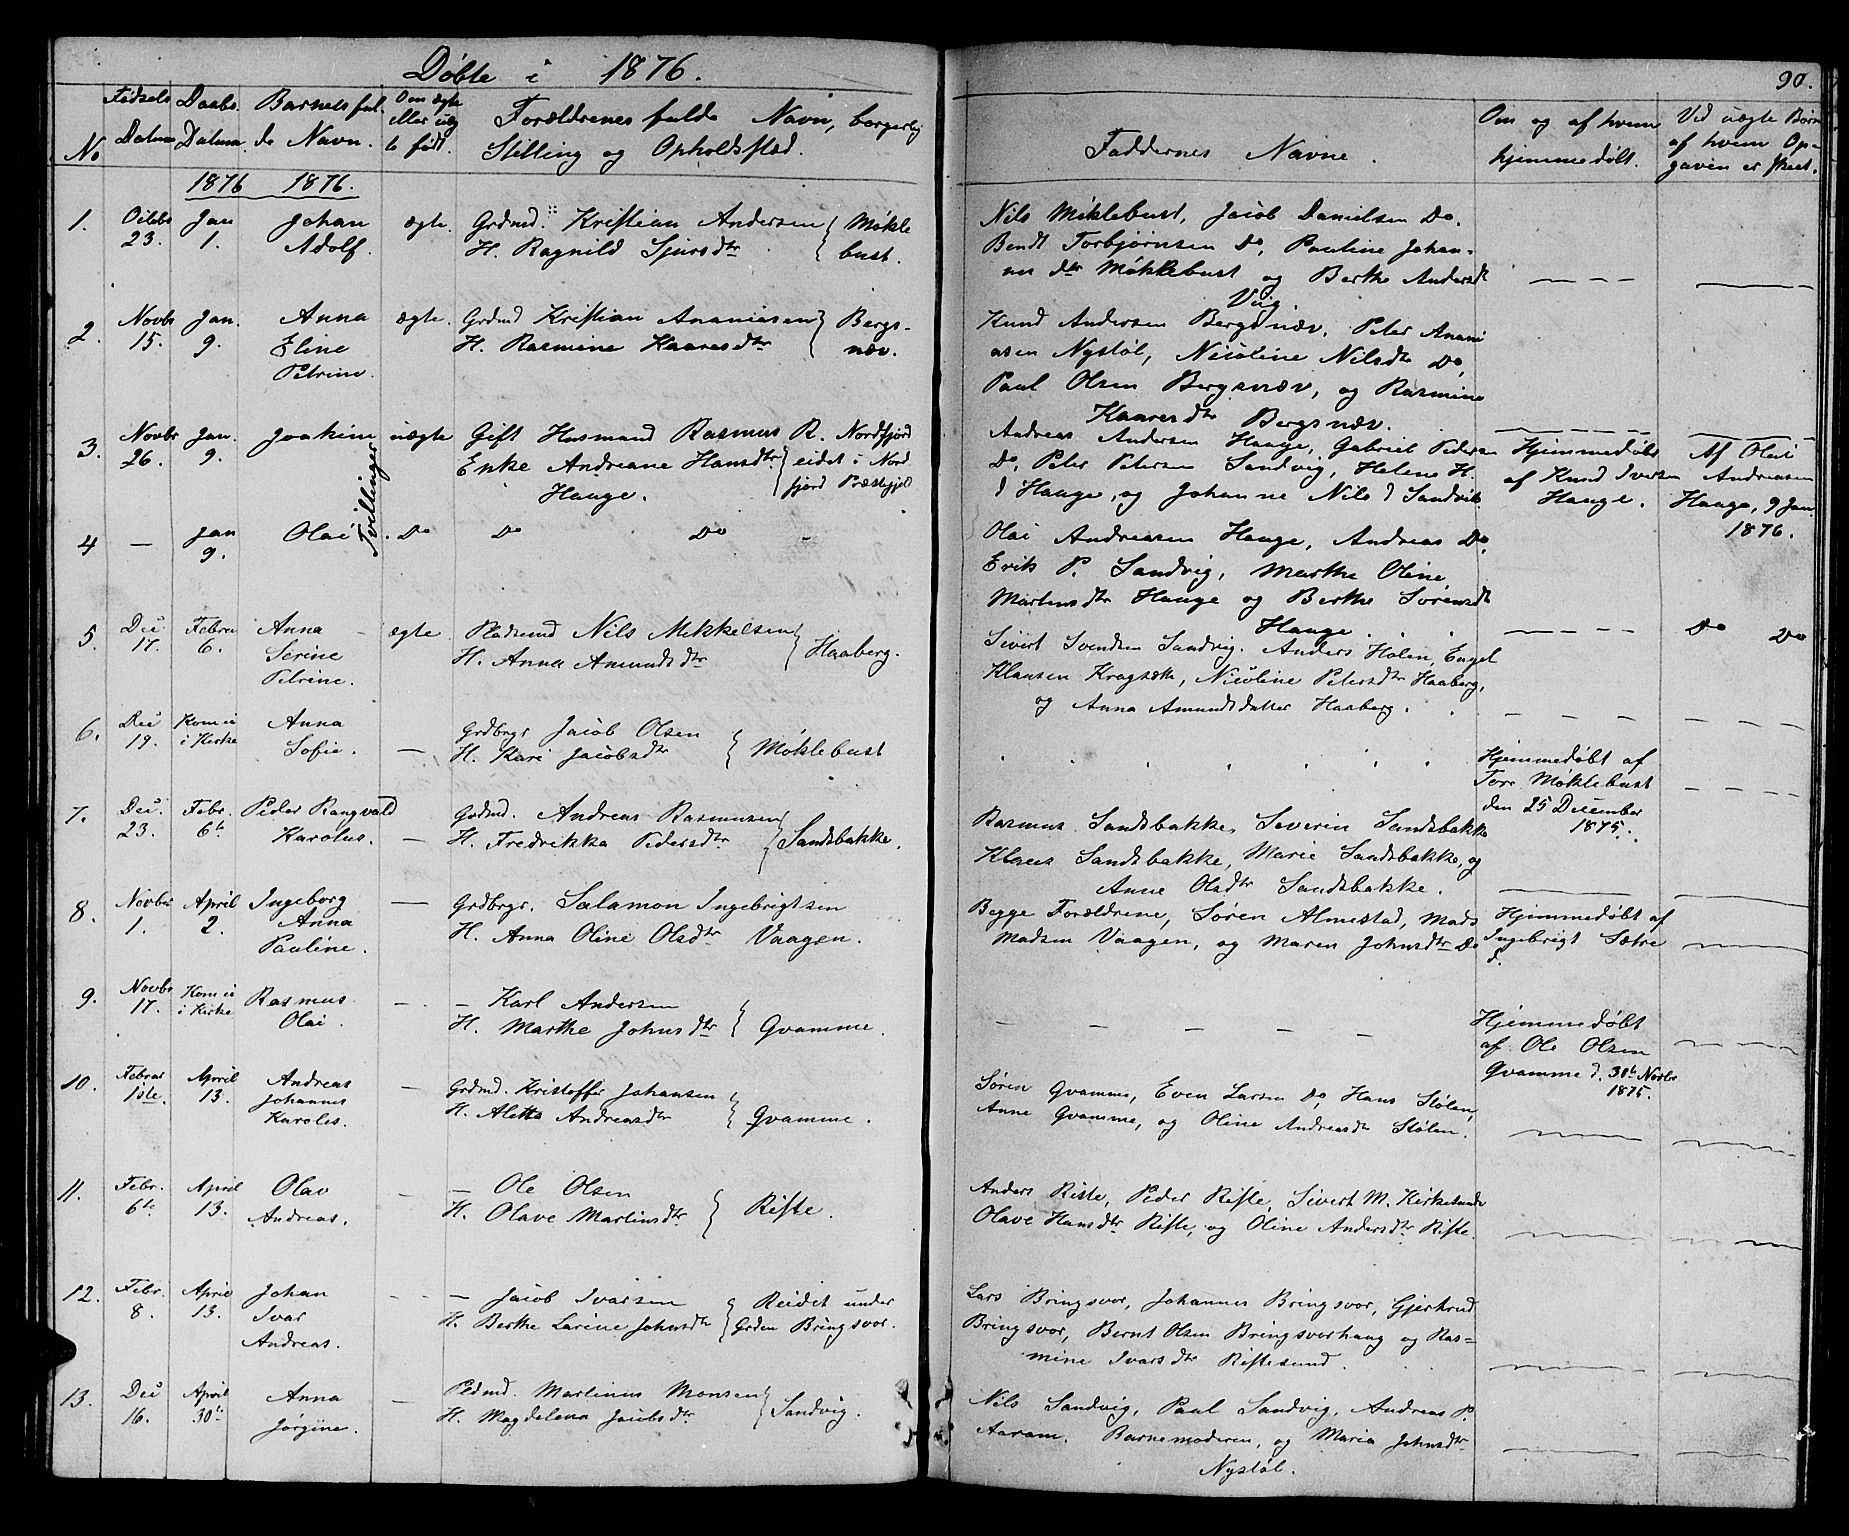 Døbte i 1876.
90.
No
Fødsels Datum
Daabs Datum.
Barnets fulde Navn.
Om ægte eller uægte født.
Forældrenes fulde Navn, borgerlig
Stilling og Opholdssted.
Faddernes Navne.
Om og af hvem
hjemmedøbt.
Ved uægte Børn
af hvem Op-
gaven er skeet.
1876 1876.
1. Octbr 23. Jan 1. Johan Adolf. ægte.
Grdmd. Kristian Andersen
H. Ragnild Sjursdtr
Møkle
bust.
Nils Møklebust, Jacob Danielsen Do.
Bendt Torbjørnsen Do, Pauline Johan-
nesdtr Møklebust og Berthe Andersdt
Viig.
2. Novbr 15. Jan. 9. Anna Eline Petrine. ægte.
Grdmd Kristian Ananiasen
H. Rasmine Kaaresdtr
Bergs-
næv.
Knud Andersen Bergsnæv, Peter Anani
asen Nystøl, Nicoline Nilsdtr Do,
Paul Olsen Bergsnæv, og Rasmine
Kaaresdtr Bergsnæv.
3. Novbr 26. Jan. 9. Joakim uægte
Tvillinger
Gift Husmand Rasmus R. Nordfjord
Enke Andreane Hansdtr eidet i Nord
Hauge. fjord Præstegjeld
Andreas Andersen Hauge, Gabriel Pedersen
Do, Peter Petersen Sandvig, Helene H.
d Hauge, og Johanne Nils d Sandvik
Hjemmedøbt
af Knud Iversen
Hauge.
Af Olai
Andreasen
Hauge, 9 Jan.
1876.
4 — Jan 9. Olai. Do Do Do
Olai Andreasen Hauge, Andreas Do,
Erik P. Sandvig, Marthe Oline
Martinsdtr Hauge og Berthe Sørensdt
Hauge.
Do Do
5. Dec 17. Febru 6. Anna Serine Petrine. ægte
Pladsmd Nils Mikkelsen
H. Anna Amundsdtr
Haaberg.
Sivert Svendsen Sandvig. Anders Holen, Engel
Klausen Kragsæth, Nicoline Petersdtr Haaberg,
og Anna Amundsdatter Haaberg.
6. Dec 19. Kom ei i Kirke Anna Sofie. —
Grdbrgr Jacob Olsen
H. Kari Jacobsdtr
Møklebust
Hjemmedøbt af
Tore Møklebust
den 25 December
1875.
7. Dec. 23. Febr. 6te Peder Rangvald Karolus. —
Grdmd. Andreas Rasmusen
H. Fredrikka Pedersdtr
Sandsbakke.
Rasmus Sandsbakke, Severin Sandsbakke
Klaus Sandsbakke, Marie Sandsbakke, og
Anne Olsdtr Sandsbakke.
8. Novber 1. April 2. Ingeborg Anna Pauline. —
Grdbrgr. Salamon Ingebrigtsen
H. Anna Oline Olsdtr Vaagen.
Begge Forældrene, Søren Almestad, Mads
Madsen Vaagen, og Maren Johnsdtr Do
Hjemmedøbt af
Ingebrigt Sætre
9. Novbr 17. Kom ei i Kirke Rasmus Olai. —
— Karl Andersen
H. Marthe Johnsdtr
Gvamme.
Hjemmedøbt
af Ole Olsen
Gvamme d. 30te Novbr
1875.
10. Februar 1ste. April 13. Andreas Johannes Karolus. —
Grdmd. Kristoffer Johansen
H. Aletta Andreasdtr
Gvamme.
Søren Gvamme, Even Larsen Do, Hans Stølen,
Anne Gvamme, og Oline Andreasdtr Stølen.
11. Febr. 6te April 13. Olav Andreas. —
— Ole Olsen
H. Olave Martinsdtr
Riste.
Anders Riste, Peder Riste, Sivert M. Kirkesunde
Olave Hansdtr Riste, og Oline Andersdtr Riste.
12. Febr. 8. April 13. Johan Ivar Andreas. —
— Jacob Ivarsen
H. Berthe Larine Johnsdtr
Reidet under
Grden Bringsvor.
Lars Bringsvor, Johannes Bringsvor, Gjertrud
Bringsvor, Bernt Olsen Bringsvorhaug og Ras-
mine Ivarsdtr Ristesund.
13. Dec 16. April 30te Anna Jørgine. —
Pldmd. Martinus Monsen
H. Magdelena Jacobsdtr
Sandvig.
Nils Sandvig, Paul Sandvig, Andreas P.
Aaram. Barnemoderen, og Maria Johnsdtr
Nystøl.